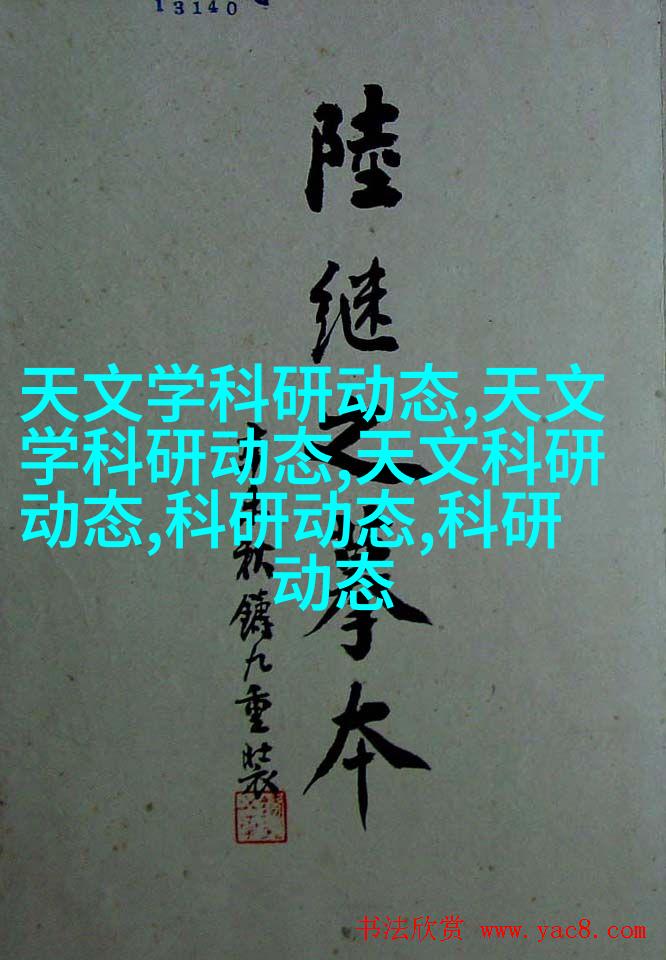 13140
陸继之摹本
秋鑄九重裝
天文学科研动态,天文
学科研动态,天文科研
动态,科研动态,科研
动态
书法欣赏 www.yac8.com